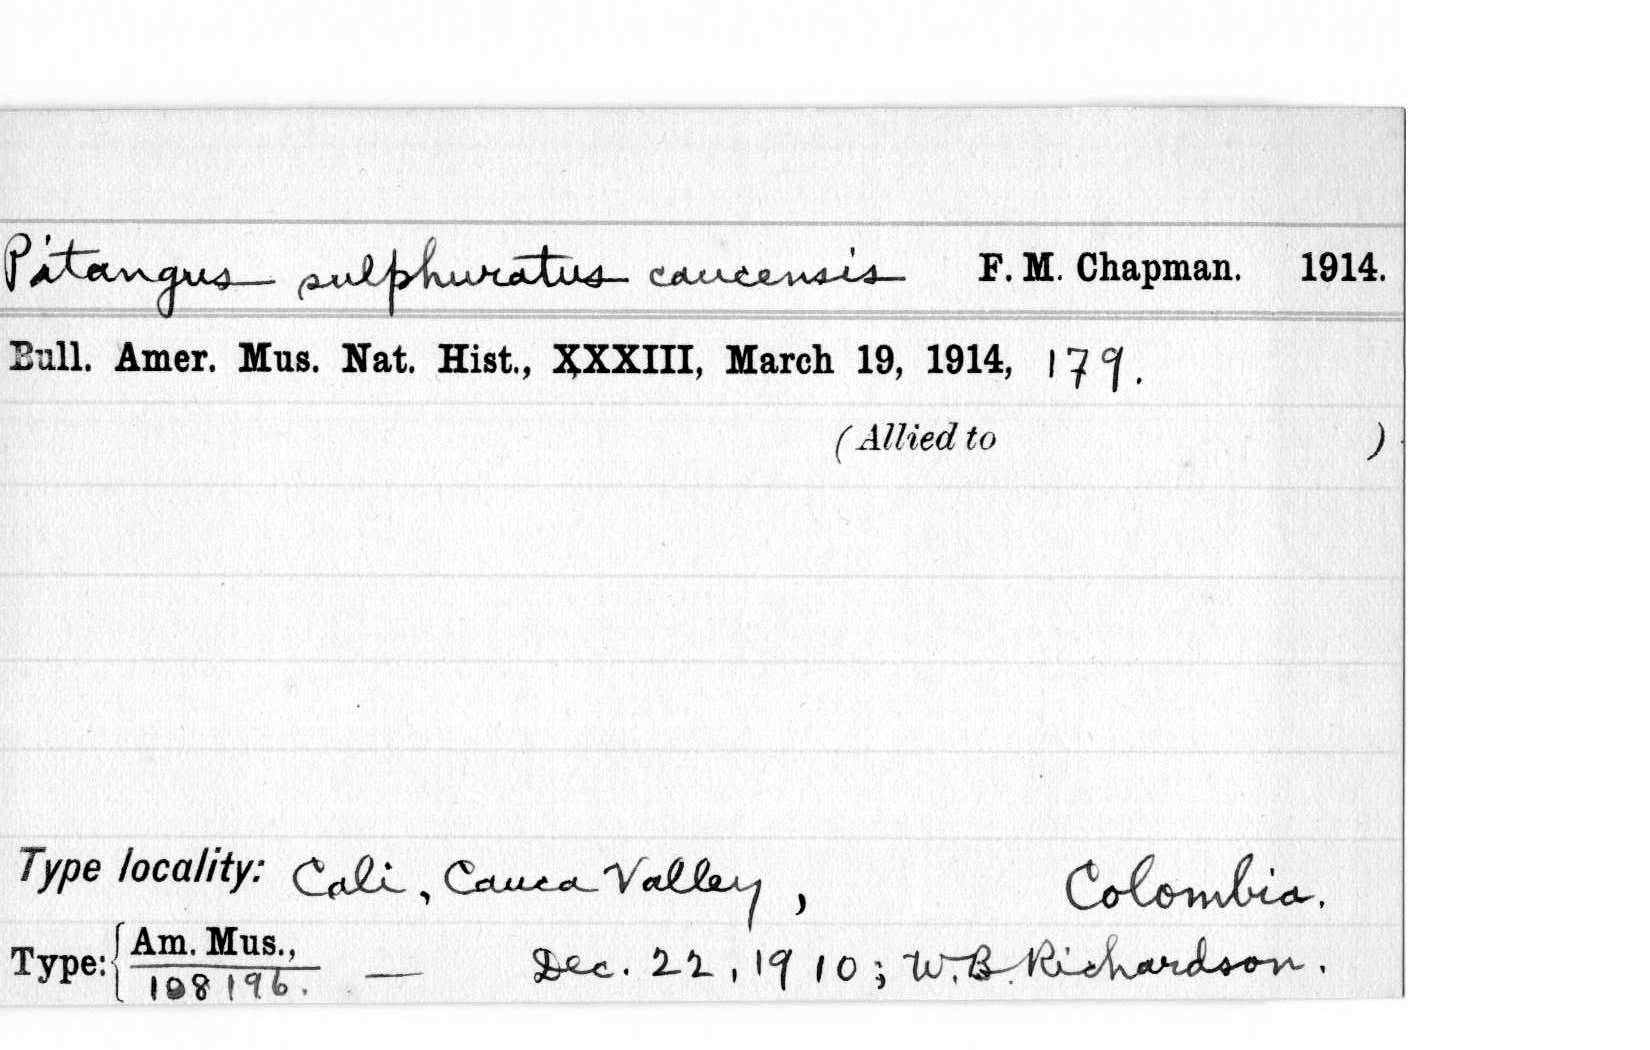 Pitangus sulphuratus caucensis F. M. Chapman. 1914.
Bull. Amer. Mus. Nat. Hist., XXXIII, March 19, 1914, 179.
(Allied to )
Type locality: Cali, Cauca Valley, Colombia.
Type: { Am. Mus.,
108196. — Dec. 22, 1910; W. B. Richardson.